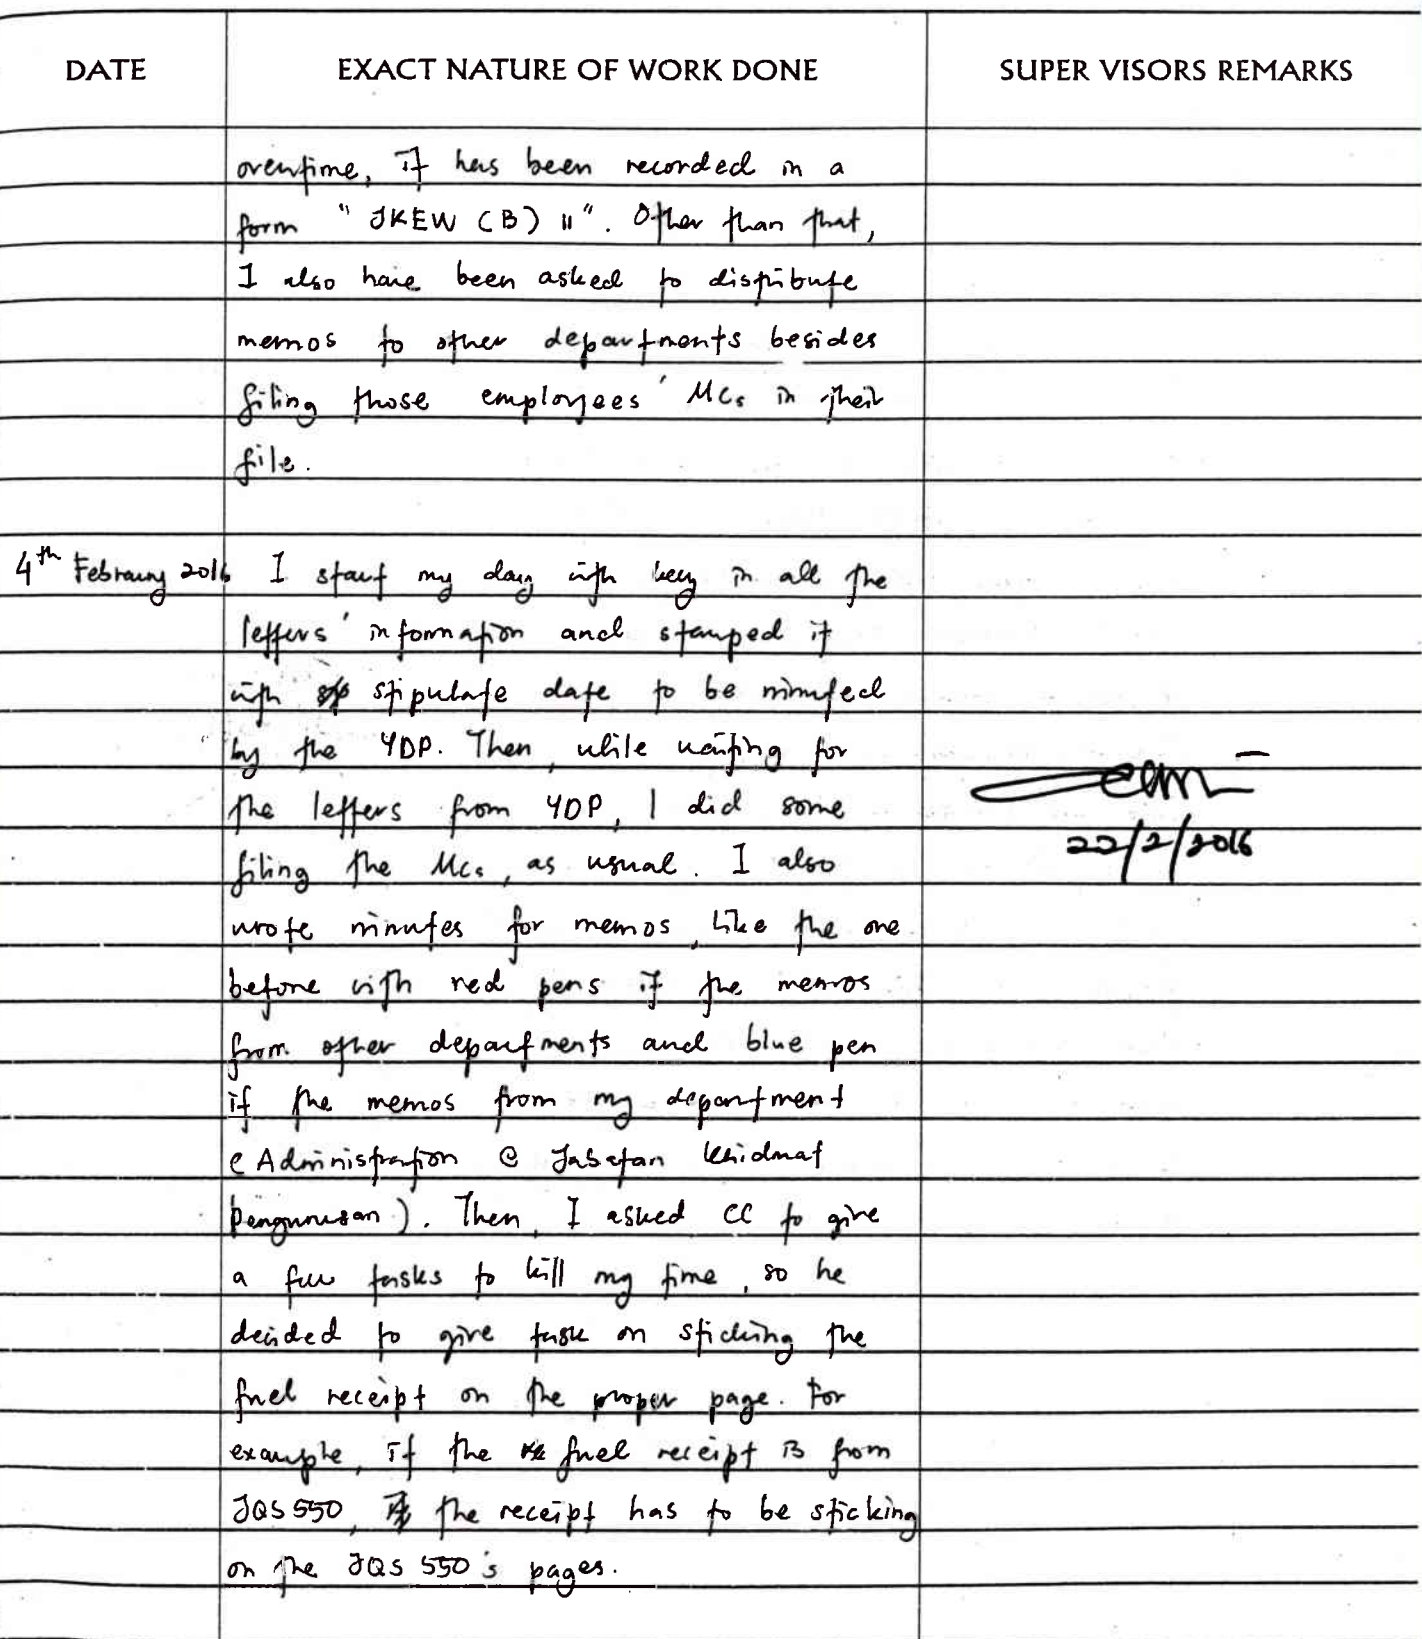 DATE EXACT NATURE OF WORK DONE SUPER VISORS REMARKS
overtime, it has been recorded in a
form "JKEW (B) 11". Other than that,
I also have been asked to distribute
memos to other departments besides
filing those employees' MCs in their
file.
4th February 2016 I start my day with key in all the
letters' information and stamped it
with stipulate date to be minuted
by the YDP. Then, while waiting for
the letters from YDP, I did some
filing the MCs, as usual. I also
22/2/2016
wrote minutes for memos, like the one
before with red pens if the memos
from other departments and blue pen
if the memos from my department
(Administration @ Jabatan Khidmat
Pengurusan). Then, I asked CC to give
a few tasks to kill my time, so he
decided to give task on sticking the
fuel receipt on the proper page. For
example, if the fuel receipt is from
JQS 550, the receipt has to be sticking
on the JQS 550's pages.